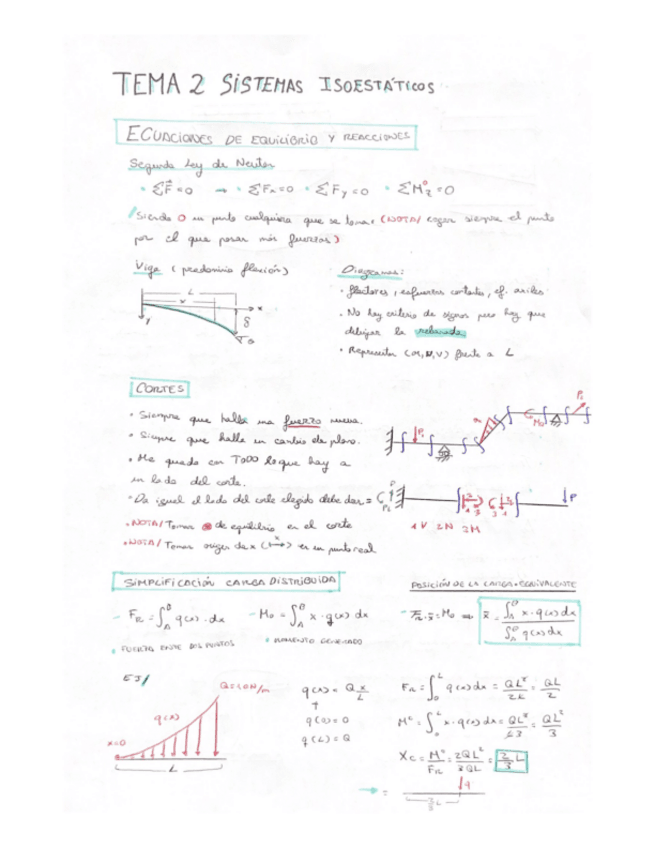 TEMA 2 SISTEMAS ISOESTÁTICOS
ECUACIONES DE EQUILIBRIO Y REACCIONES
Segunda Ley de Newton
• ΣF⃗=0 → • ΣFx=0 • ΣFy=0 • ΣM°z=0
Siendo O un punto cualquiera que se toma (NOTA/ coger siempre el punto
por el que pasan más fuerzas)
Viga (predominio flexión)
L
x
y
δ
θ
Diagramas:
• flectores, esfuerzos cortantes, ef. axiles
• No hay criterio de signos pero hay que
dibujar la rebanada
• Representar (M,N,V) frente a L
CORTES
• Siempre que halla una fuerza nueva.
• Siempre que halle un cambio de plano.
• Me quedo con TODO lo que hay a
un lado del corte.
• Da igual el lado del corte elegido debe dar =
• NOTA/ Tomar de equilibrio en el corte
• NOTA/ Tomar origen de x en un punto real
P₁
q
M₀
P₂
P
1 V 2N 3M
SIMPLIFICACIÓN CARGA DISTRIBUIDA
POSICIÓN DE LA CARGA EQUIVALENTE
- FR = ∫_A^B q(x)·dx
- M₀ = ∫_A^B x·q(x) dx
FR·x̄ = M₀ ⇒ x̄ = ∫_A^B x·q(x)dx / ∫_A^B q(x)dx
• FUERZA ENTE DOS PUNTOS
• MOMENTO GENERADO
EJ/
Q=10N/m
q(x)
x=0
L
q(x) = Q x/L
↑
q(0) = 0
q(L) = Q
FR = ∫_0^L q(x)dx = QL²/2L = QL/2
M° = ∫_0^L x·q(x)dx = = QL²/3
Xc = M°/FR = 2QL²/3QL = 2/3 L
→ =
q
2/3 L